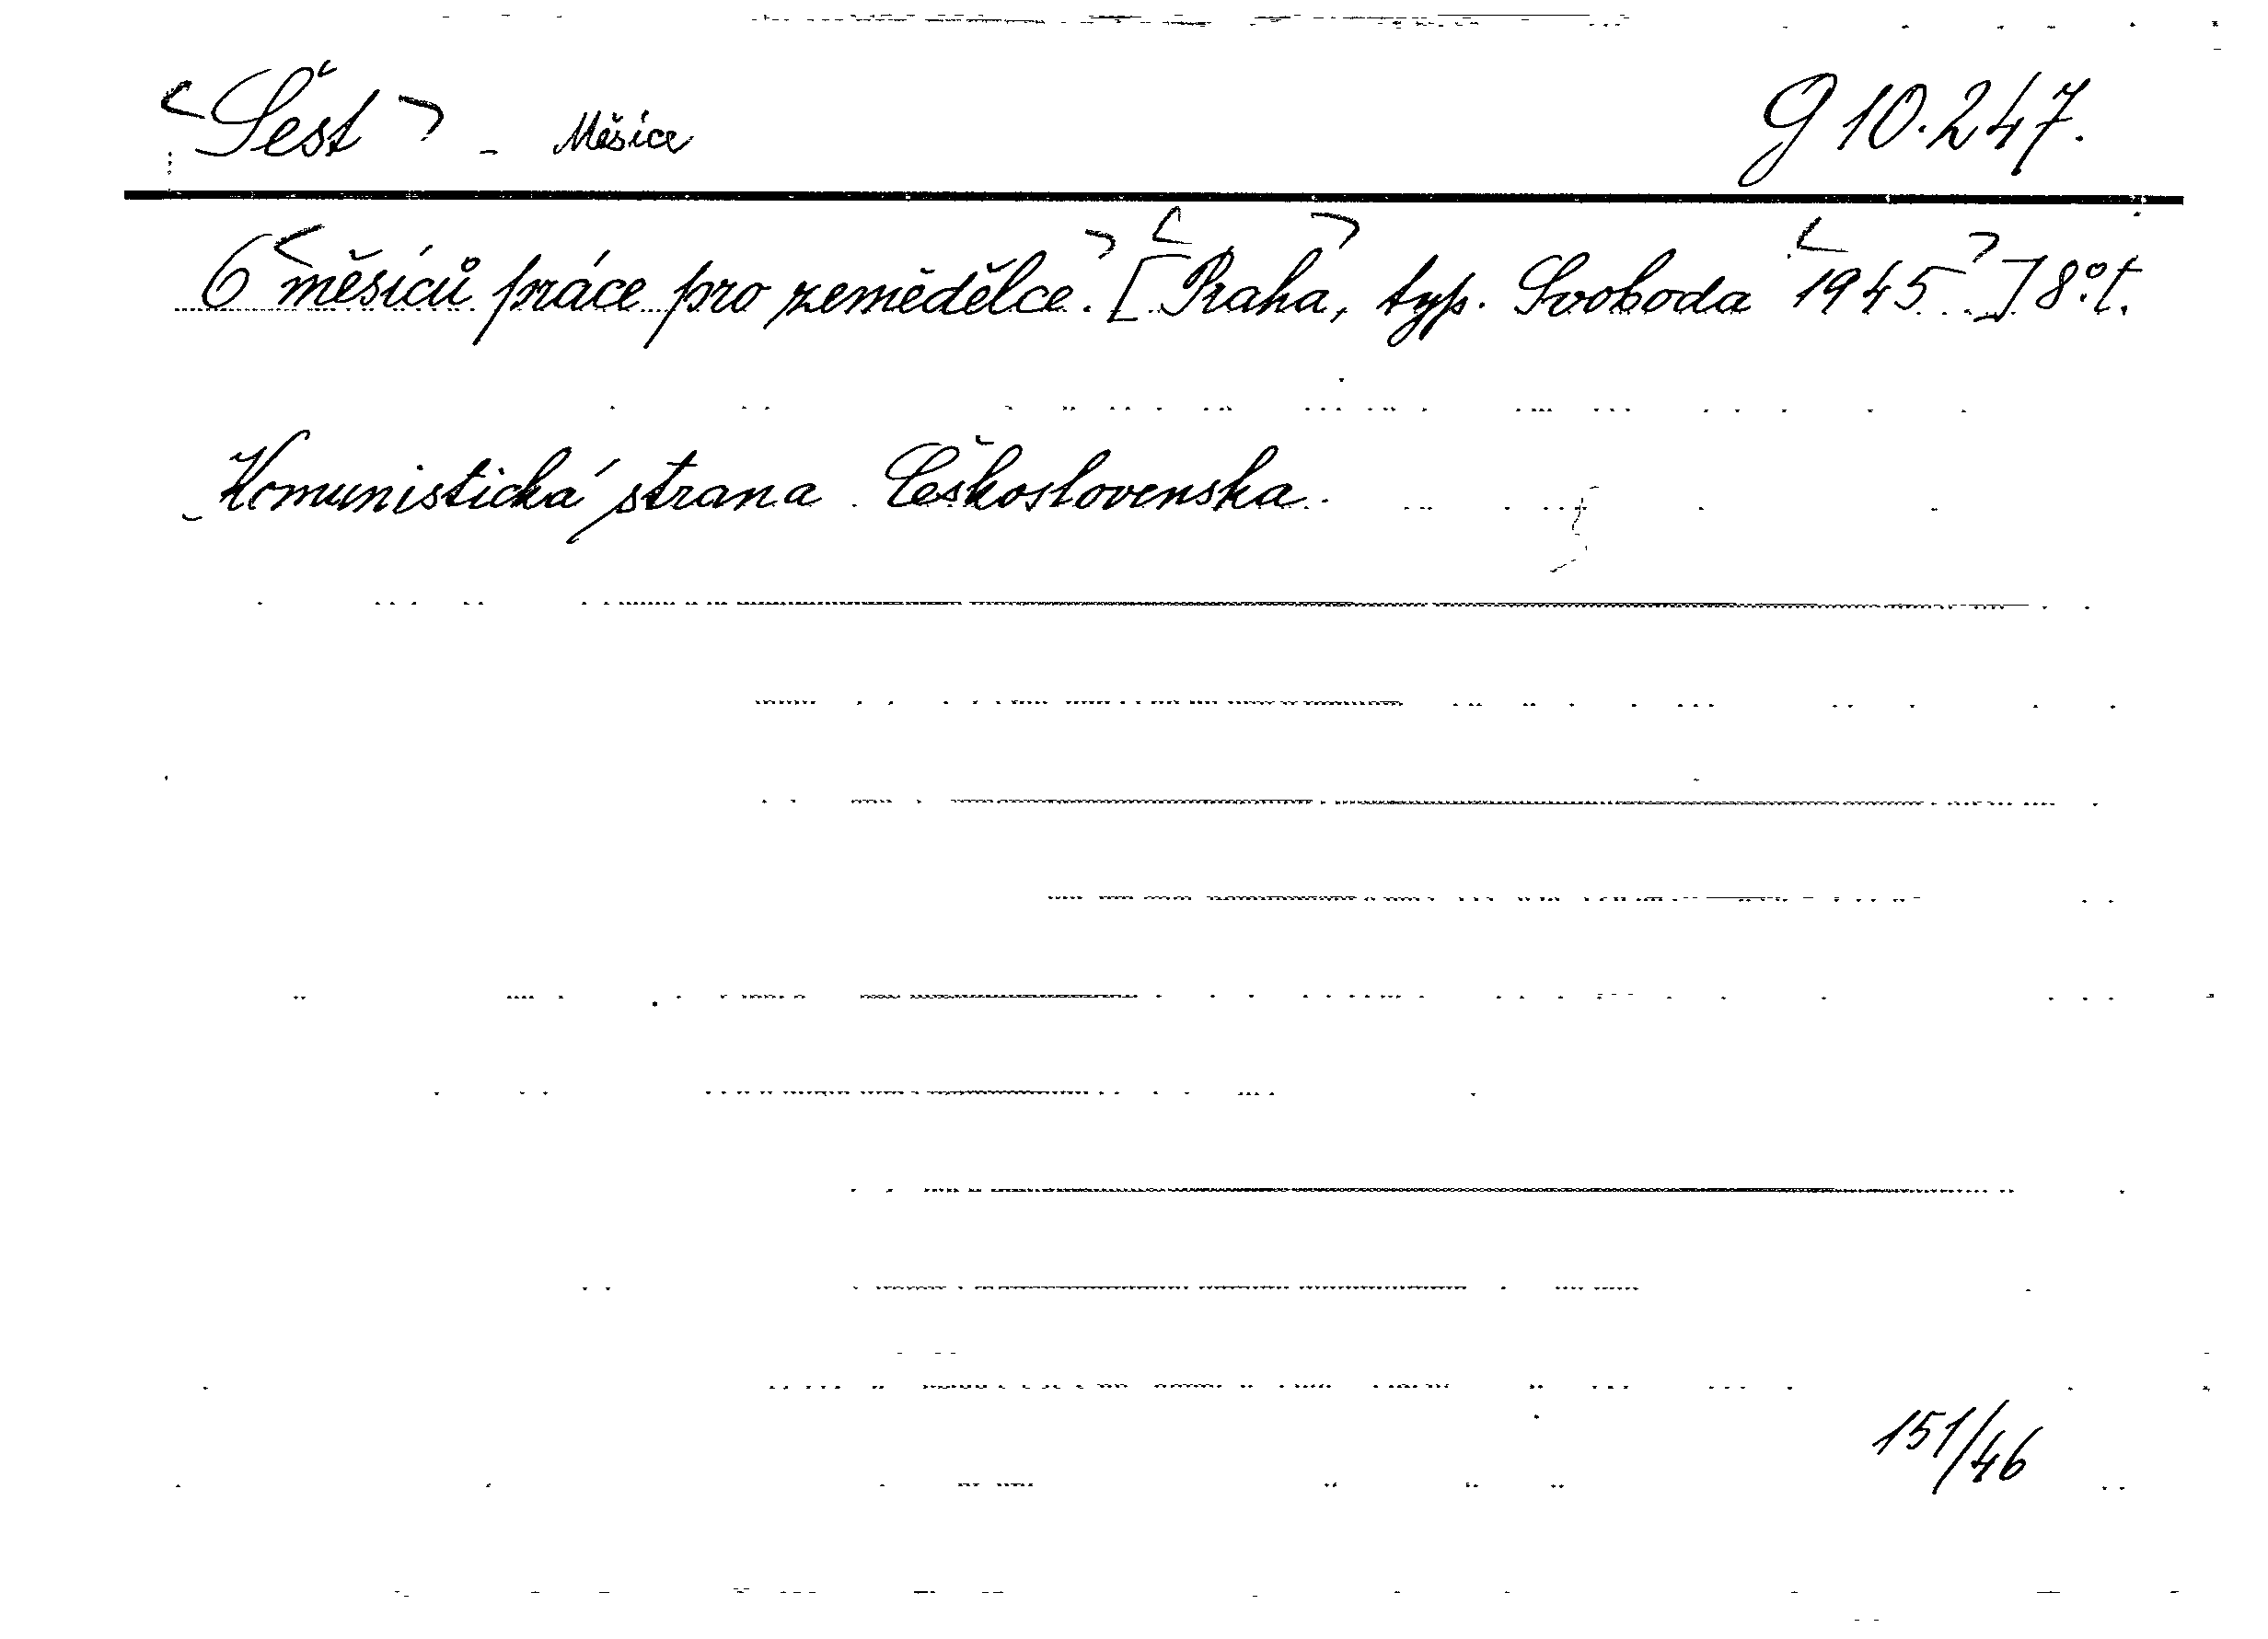 <Šest> - Měsíce G 10.247.
6 <měsíců práce pro zemědělce>. [<Praha>, typ. Svoboda <1945>] 8°. t.
Komunistická strana Československa.
151/46